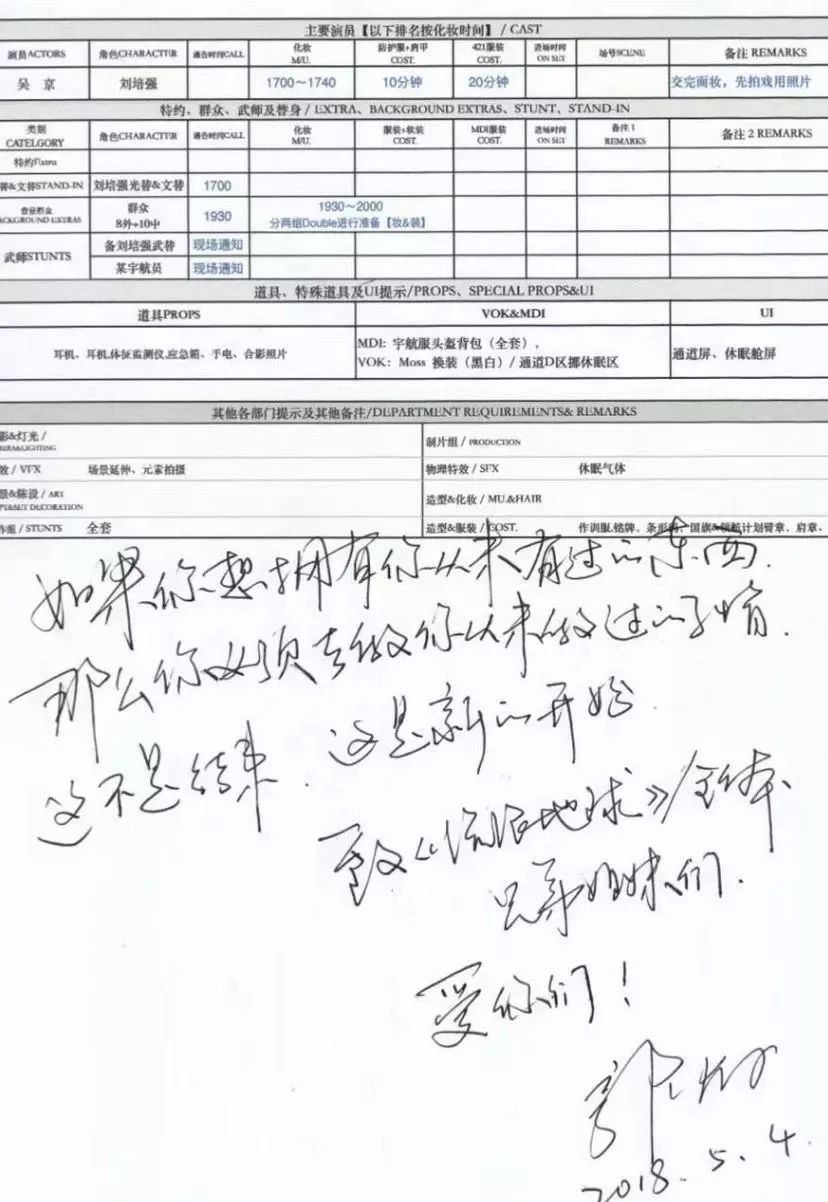 主要演员【以下排名按化妆时间】/ CAST
演员ACTORS 角色CHARACTER 通告时间CALL 化妆 M/U. 防护服+肩甲 COST. 421服装 COST. 进场时间 ON SET 场号SCENE 备注 REMARKS
吴 京 刘培强 1700～1740 10分钟 20分钟 交完面妆，先拍戏用照片
特约、群众、武师及替身 / EXTRA、BACKGROUND EXTRAS、STUNT、STAND-IN
类别 CATELGORY 角色CHARACTER 通告时间CALL 化妆 M/U. 服装+软装 COST. MDI服装 COST. 进场时间 ON SET 备注 1 REMARKS 备注 2 REMARKS
特约Extra
替&文替STAND-IN 刘培强光替&文替 1700
BACKGROUND EXTRAS 群众 8外+10中 1930 1930～2000 分两组Double进行准备【妆&装】
武师STUNTS 备刘培强武替 现场通知
某宇航员 现场通知
道具、特殊道具及UI提示/PROPS、SPECIAL PROPS&UI
道具PROPS VOK&MDI UI
耳机、耳机,体征监测仪,应急箱、手电、合影照片 MDI: 宇航服头盔背包（全套），
VOK：Moss 换装（黑白）/ 通道D区挪休眠区 通道屏、休眠舱屏
其他各部门提示及其他备注/DEPARTMENT REQUIREMENTS& REMARKS
影&灯光 / 制片组 / PRODUCTION
效 / VFX 场景延伸、元素拍摄 物理特效 / SFX 休眠气体
景&陈设 / ART
SET DECORATION 造型&化妆 / MU.&HAIR
作组 / STUNTS 全套 造型&服装 / COST. 作训服,铭牌、条形码、国旗&领航计划臂章、肩章、
如果你想拥有你从来有过的东西.
那么你必须去做你从来做过的事情.
这不是结束. 这是新的开始.
致《流浪地球》全体
兄弟姐妹们.
爱你们！
郭帆
2018. 5. 4